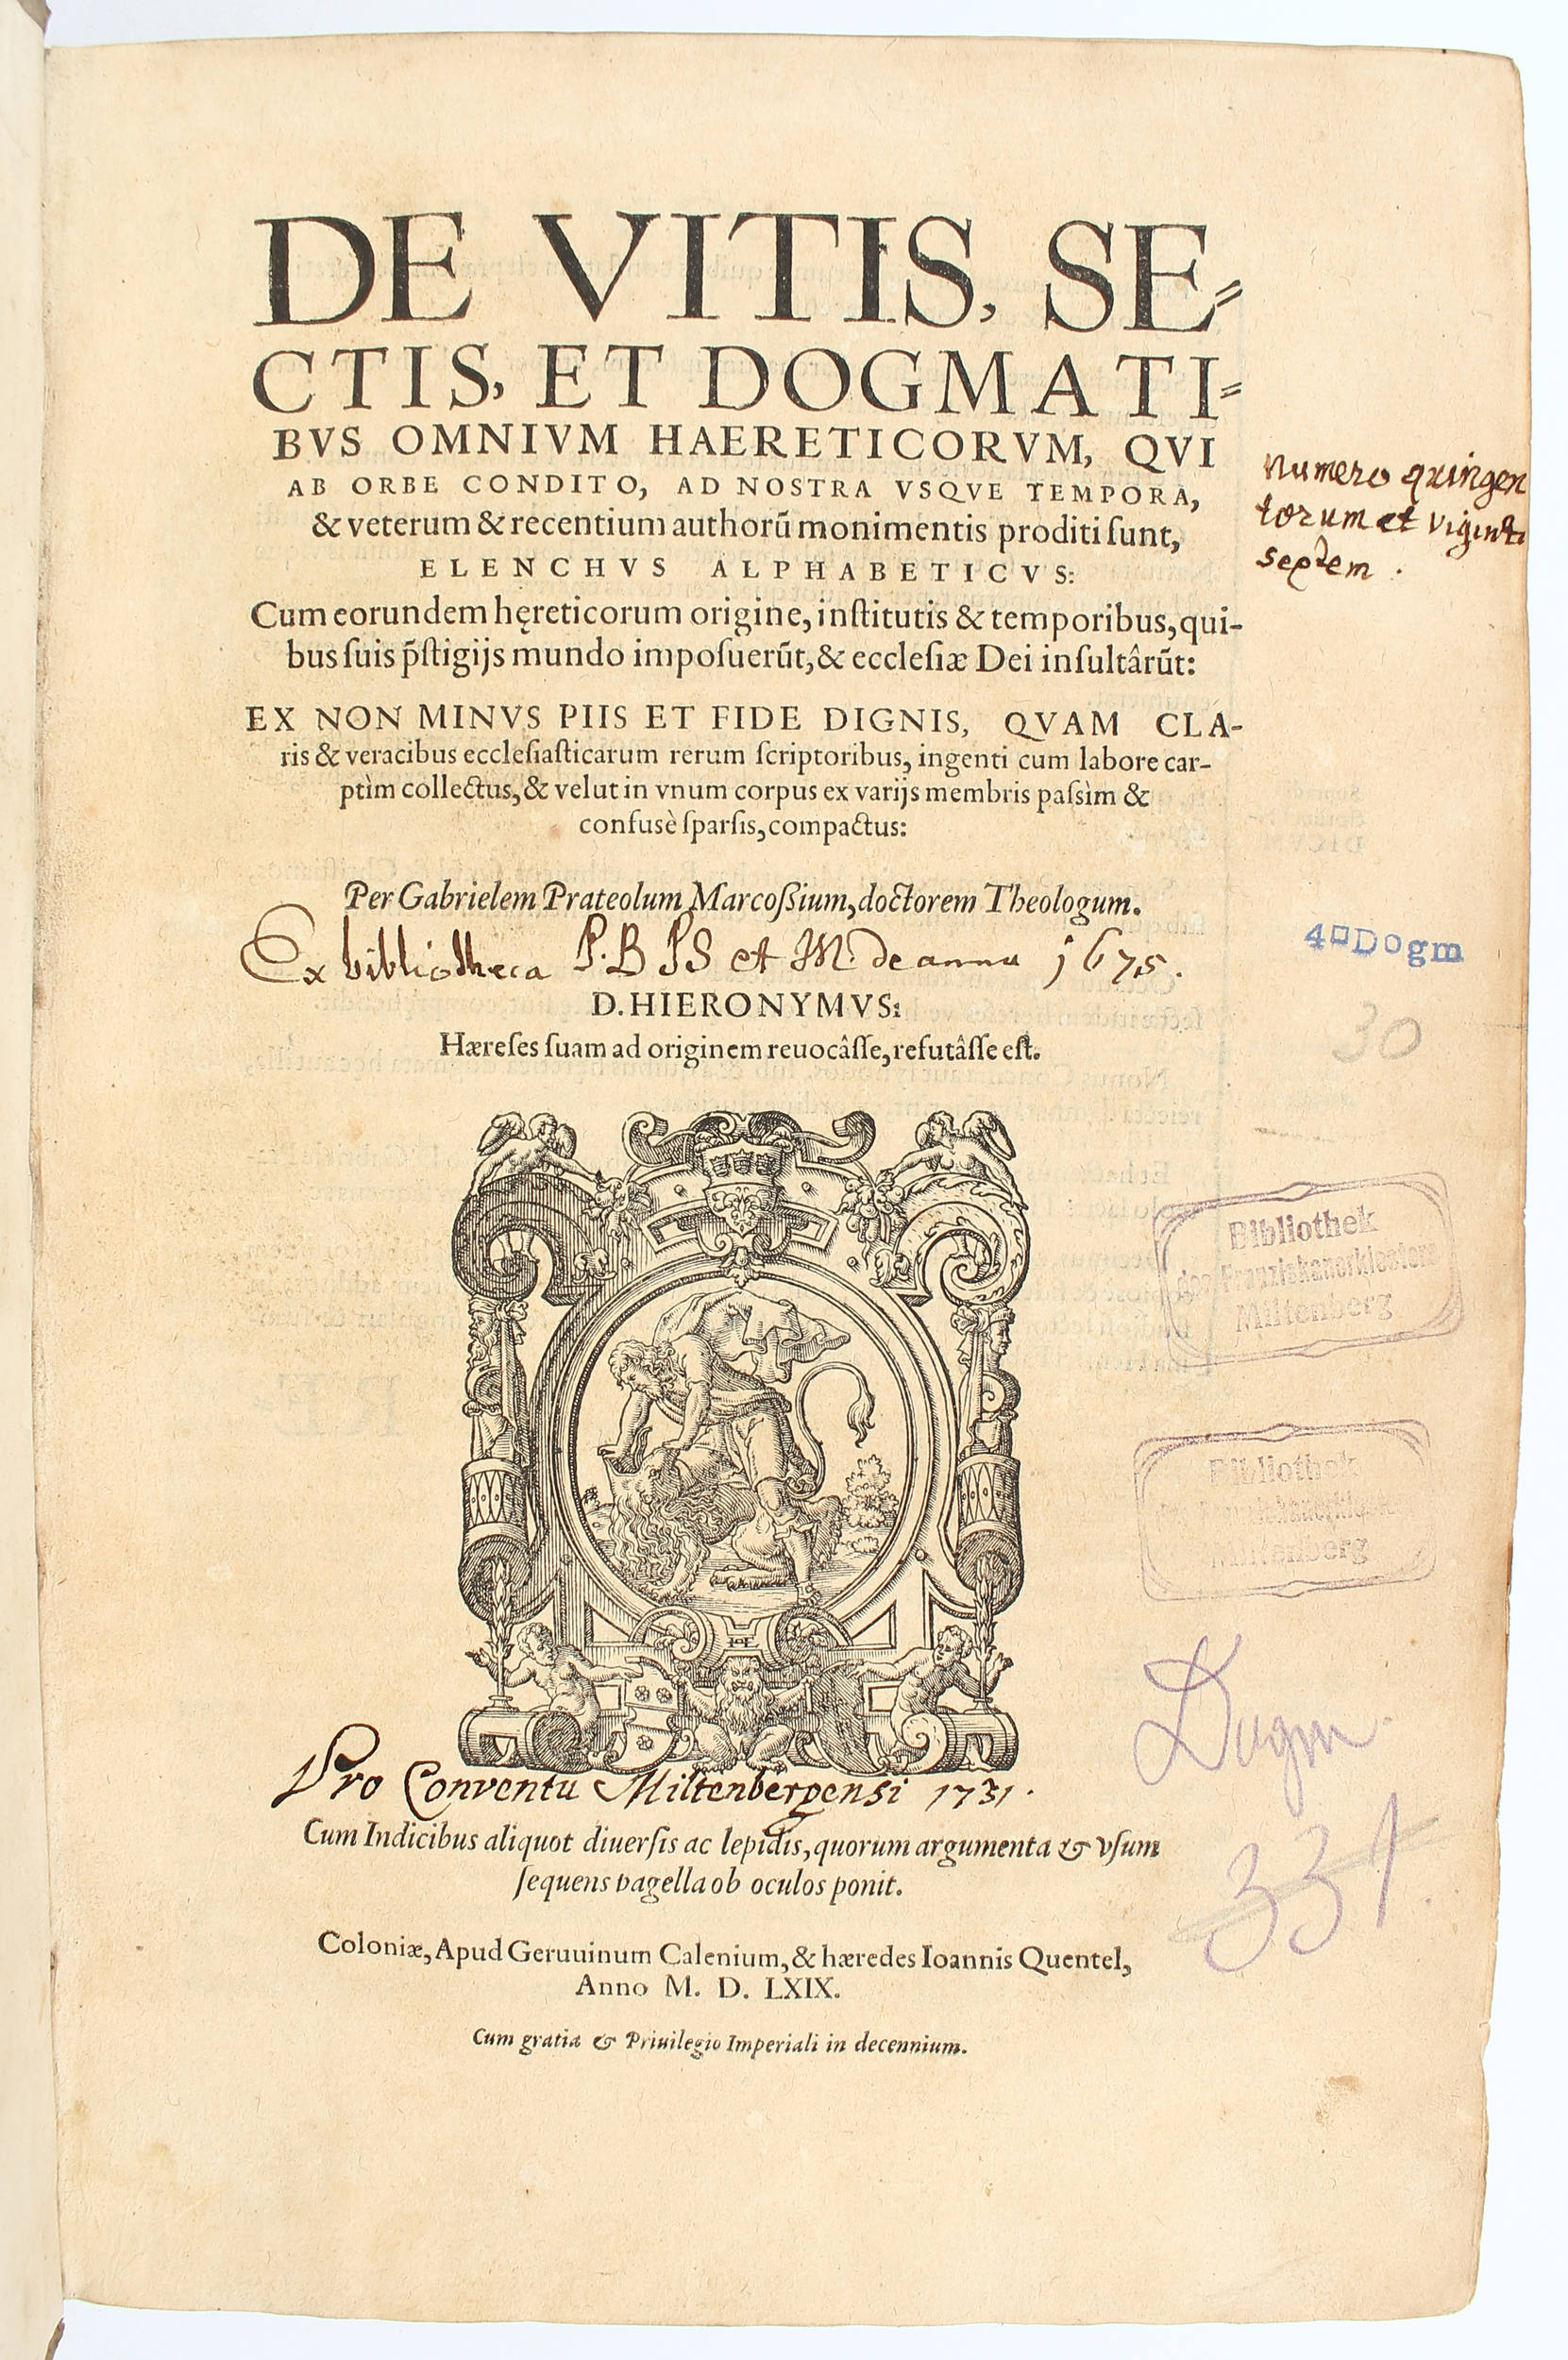 DE VITIS, SE=
CTIS, ET DOGMATI=
BVS OMNIVM HAERETICORVM, QVI
AB ORBE CONDITO, AD NOSTRA VSQVE TEMPORA,
& veterum & recentium authorũ monimentis proditi ſunt,
ELENCHVS ALPHABETICVS:
numero quingen
torum et viginti
septem.
Cum eorundem hęreticorum origine, inſtitutis & temporibus, qui-
bus ſuis p̃ſtigijs mundo impoſuerũt, & ecclesiæ Dei inſultârũt:
EX NON MINVS PIIS ET FIDE DIGNIS, QVAM CLA-
ris & veracibus eccleſiaſticarum rerum ſcriptoribus, ingenti cum labore car-
ptìm collectus, & velut in vnum corpus ex varijs membris paſsìm &
confusè ſparſis, compactus:
Per Gabrielem Prateolum Marcoßium, doctorem Theologum.
Ex bibliotheca P. B PS et M. de anno 1675.
4□Dogm
D. HIERONYMVS:
30
Hæreſes ſuam ad originem reuocâſſe, refutâſſe eſt.
Bibliothek
des Franziskanerklosters
Miltenberg
Bibliothek
Miltenberg
HE
Dogm.
Pro Conventu Miltenbergensi 1731.
331.
Cum Indicibus aliquot diuerſis ac lepidis, quorum argumenta & vſum
ſequens pagella ob oculos ponit.
Coloniæ, Apud Geruuinum Calenium, & hæredes Ioannis Quentel,
Anno M. D. LXIX.
Cum gratia & Priuilegio Imperiali in decennium.